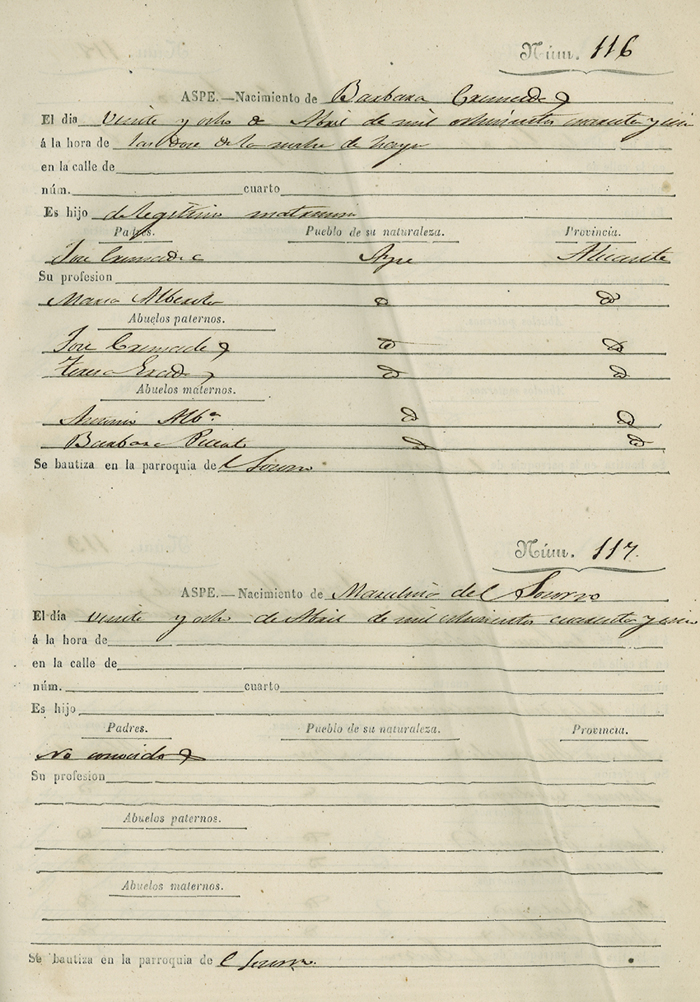 Núm. 116
ASPE.—Nacimiento de Barbara Cremades
El dia veinte y ocho de Abril de mil ochocientos cuarenta y uno
á la hora de las doce de la noche de
en la calle de
núm. cuarto
Es hijo de legitimo matrimo
Padres. Pueblo de su naturaleza. Provincia.
Jose Cremades Aspe Alicante
Su profesion
Maria Alberola
Abuelos paternos.
Jose Cremades
Teresa
Abuelos maternos.
Antonio Alb.ª
Barbara
Se bautiza en la parroquia del Socorro
Núm. 117.
ASPE.—Nacimiento de del Socorro
El día veinte y ocho de Abril de mil ochocientos cuarenta y uno
á la hora de
en la calle de
núm. cuarto
Es hijo
Padres. Pueblo de su naturaleza. Provincia.
No conocidos
Su profesion
Abuelos paternos.
Abuelos maternos.
Se bautiza en la parroquia de l Socorro.